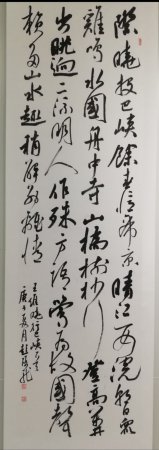 際曉投巴峽餘春憶帝京晴江一女浣朝日眾
雞鳴水國舟中市山橋樹杪行登高萬井
出眺迥二流明人作殊方語鶯為故國聲
賴多山水趣稍解別離情
王維曉行巴峽
夏月